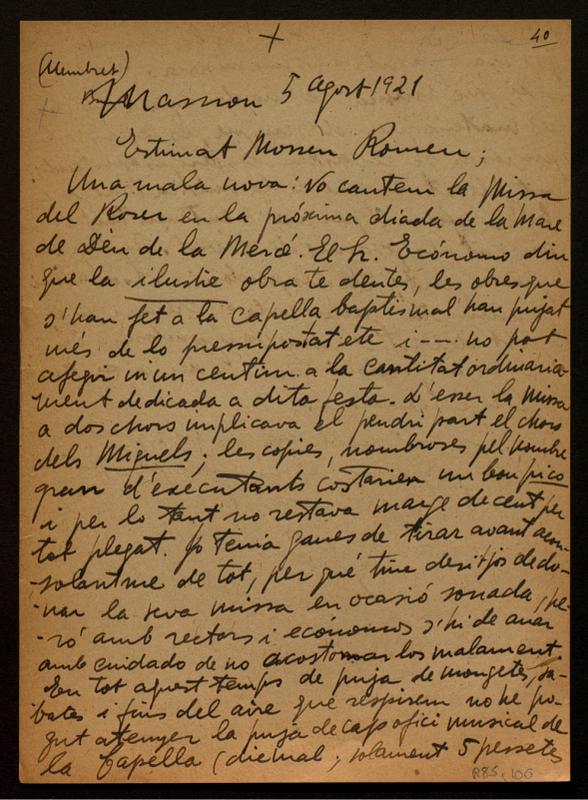 40
(Membret)
Masnou 5 Agost 1921
Estimat Mossèn Romeu;
Una mala nova: No cantem la Missa
del Roser en la pròxima diada de la Mare
de Dèu de la Mercé. El Sr. Ecónomo diu
que la ilustre obra te deutes, les obres que
s'han fet a la capella baptismal han pujat
més de lo pressupostat etc i --- no pot
afegir ni un centim a la cantitat ordinaria-
ment dedicada a dita festa. L'esser la Missa
a dos chors implicava el pendri part el chor
dels Miquels; les copies, nombroses pel nombre
gran d'executants costarien un bon pico
i per lo tant no restava marge de cent per
tot plegat. Jo tenia ganes de tirar avant acon-
solantme de tot, per qué tinc desitjos de do-
nar la seva missa en ocasió sonada, pe-
ró amb rectors i ecónomos s'hi de anar
amb cuidado de no acostomarlos malament.
En tot aquest temps de puja de mongetes, sa-
bates i fins del aire que respirem no he po-
gut atenyer la puja de cap ofici musical de
la Capella (diemal, solament 5 pessetes
R85, 106